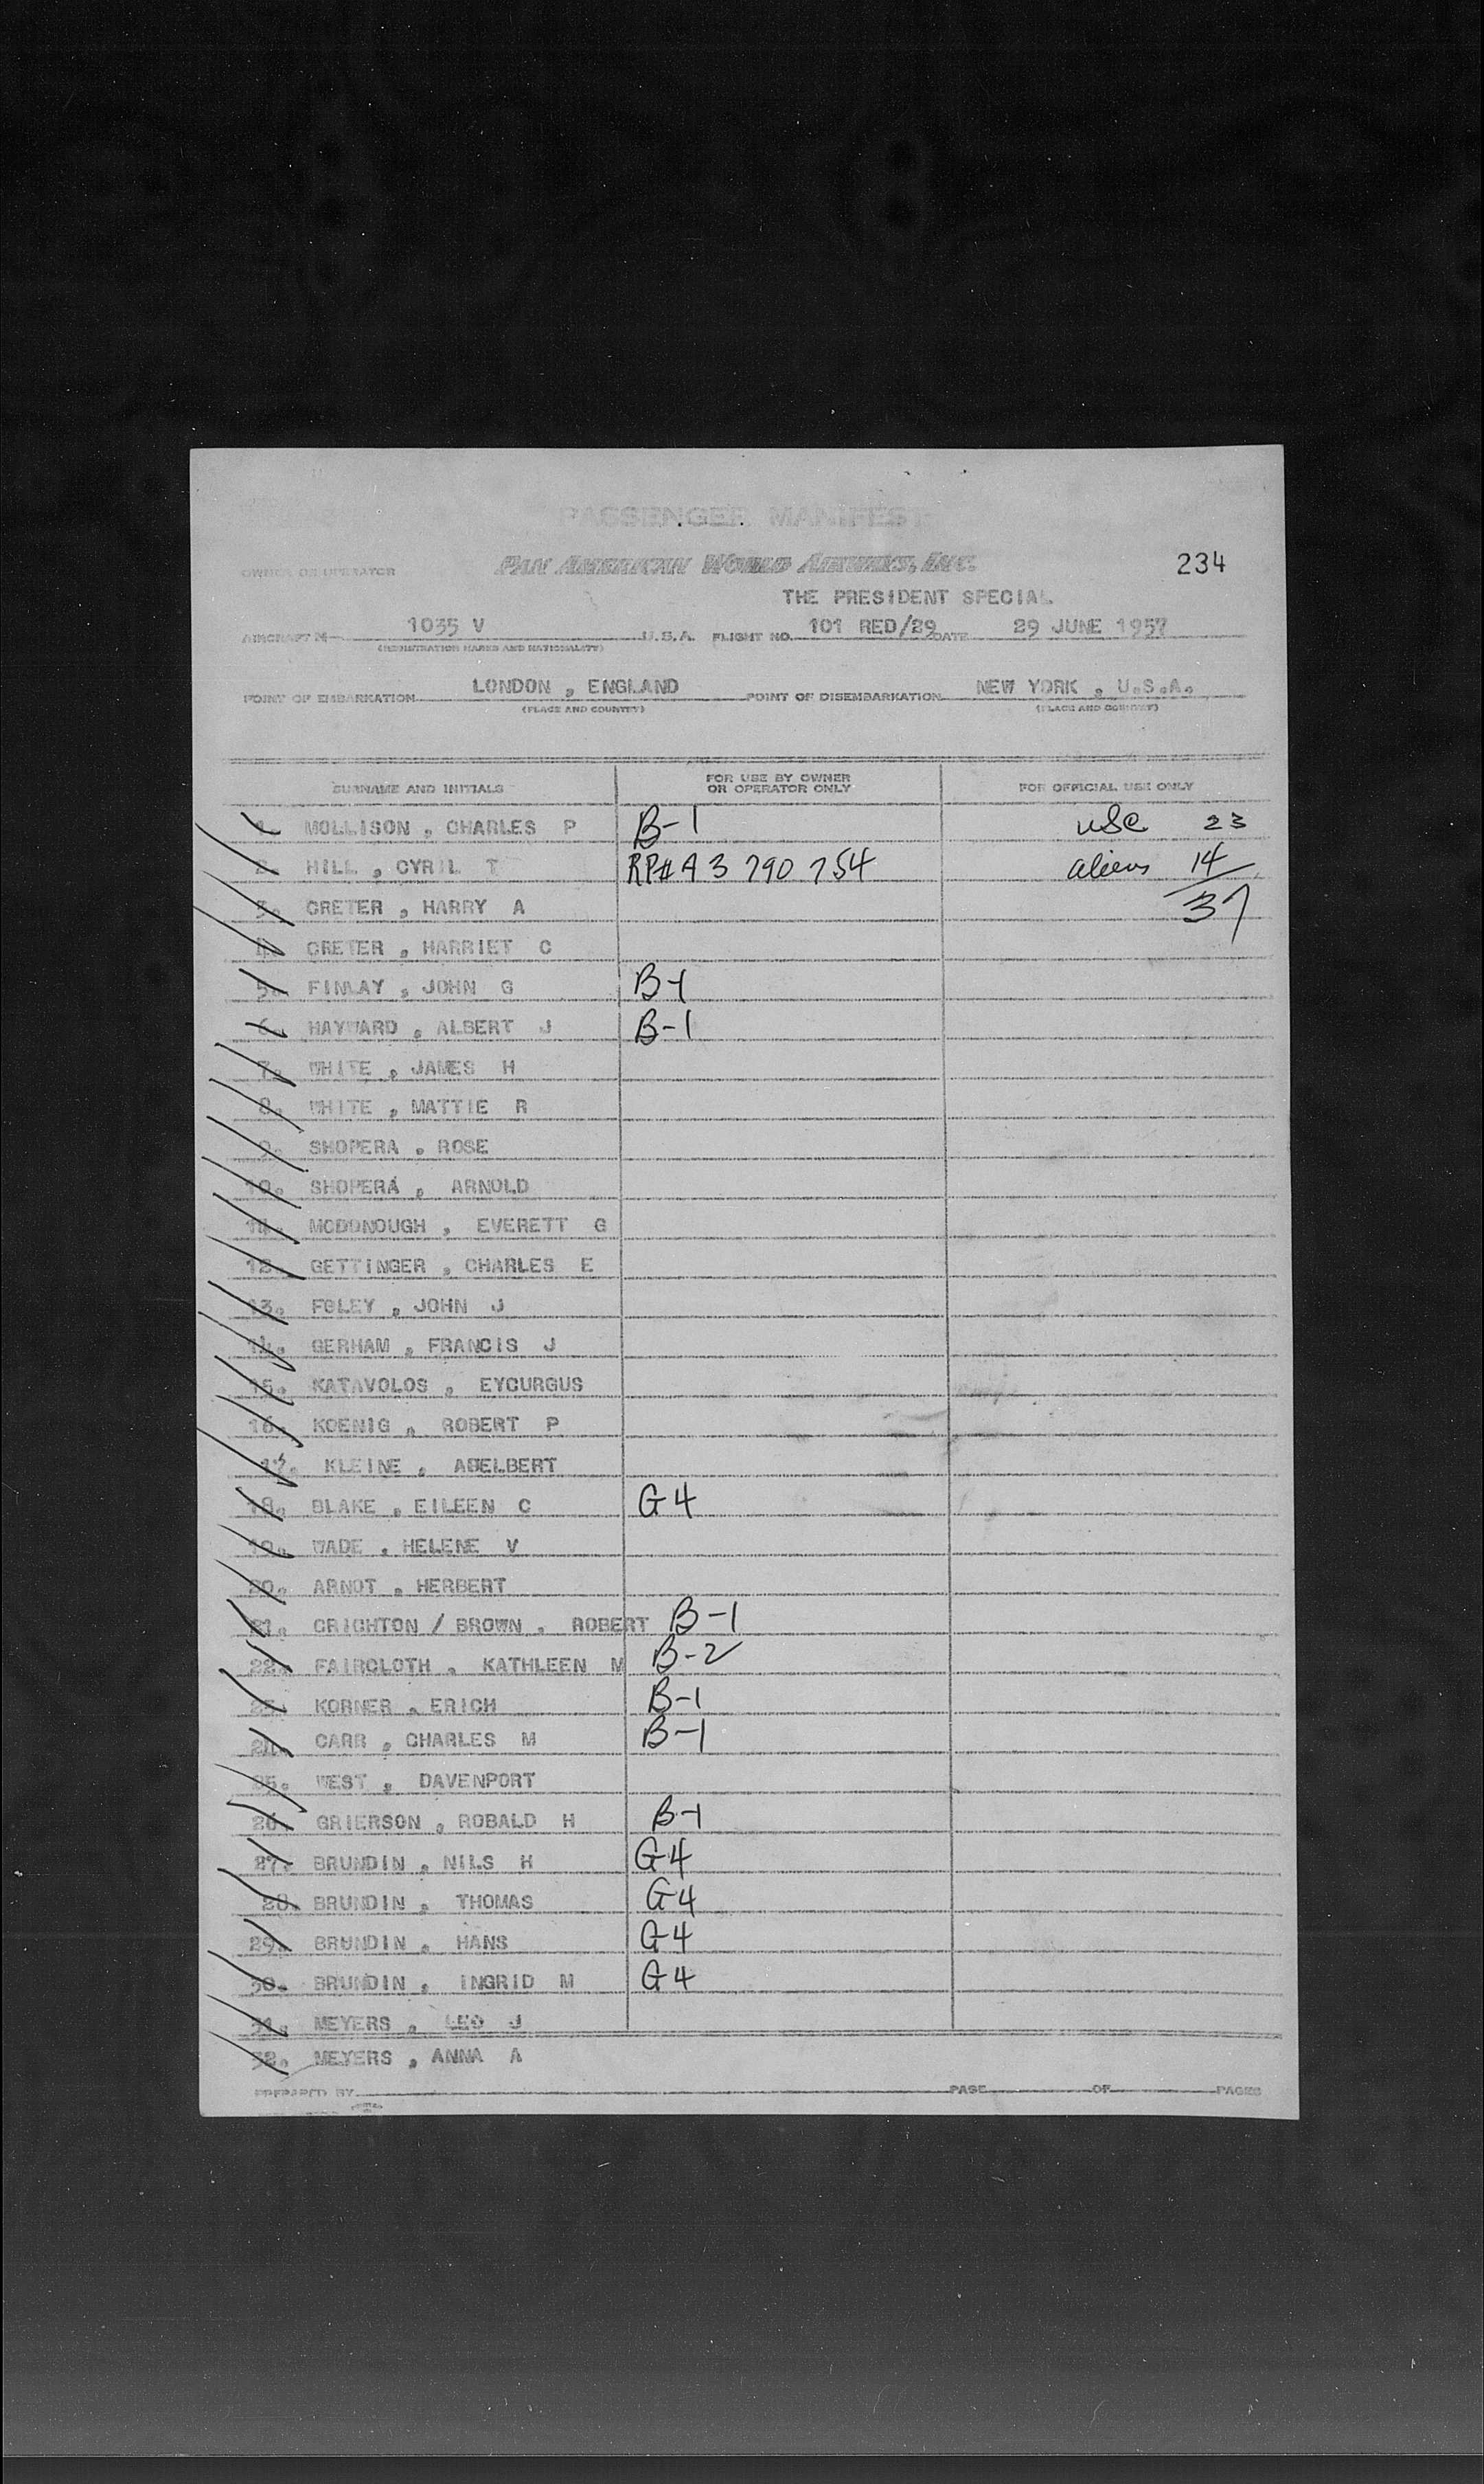 PASSENGER MANIFEST
OWNER OR OPERATOR PAN AMERICAN WORLD AIRWAYS, INC. 234
THE PRESIDENT SPECIAL
AIRCRAFT 1035 V U.S.A. FLIGHT NO. 101 RED/29 DATE 29 JUNE 1957
(REGISTRATION MARKS AND NATIONALITY)
POINT OF EMBARKATION LONDON , ENGLAND POINT OF DISEMBARKATION NEW YORK , U.S.A.
(PLACE AND COUNTRY) (PLACE AND COUNTRY)
SURNAME AND INITIALS FOR USE BY OWNER OR OPERATOR ONLY FOR OFFICIAL USE ONLY
1. MOLLISON , CHARLES P B-1 USC 23
2. HILL , CYRIL T RP# A 3 790 754 aliens 14
3. GRETER , HARRY A 37
4. GRETER , HARRIET C
5. FINLAY , JOHN G B-1
6. HAYWARD , ALBERT J B-1
7. WHITE , JAMES H
8. WHITE , MATTIE R
9. SHOPERA , ROSE
10. SHOPERA , ARNOLD
11. MCDONOUGH , EVERETT G
12. GETTINGER , CHARLES E
13. FOLEY , JOHN J
14. GERHAM , FRANCIS J
15. KATAVOLOS , EYCURGUS
16. KOENIG , ROBERT P
17. KLEINE , ADELBERT
18. BLAKE , EILEEN C G4
19. WADE , HELENE V
20. ARNOT , HERBERT
21. CRICHTON / BROWN , ROBERT B-1
22. FAIRCLOTH , KATHLEEN M B-2
23. KORNER , ERICH B-1
24. CARR , CHARLES M B-1
25. WEST , DAVENPORT
26. GRIERSON , ROBALD H B-1
27. BRUNDIN , NILS H G4
28. BRUNDIN , THOMAS G4
29. BRUNDIN , HANS G4
30. BRUNDIN , INGRID M G4
31. MEYERS , LEO J
32. MEYERS , ANNA A
PREPARED BY PAGE OF PAGES